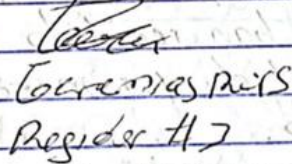 Geremias Ruis
Regidor #7